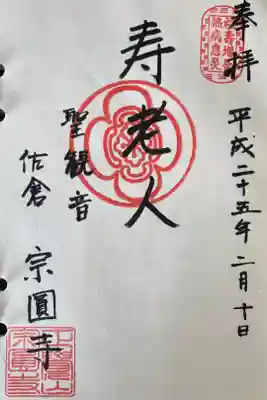 奉拝
平成二十五年二月十日
寿老人
聖観音
佐倉 宗圓寺